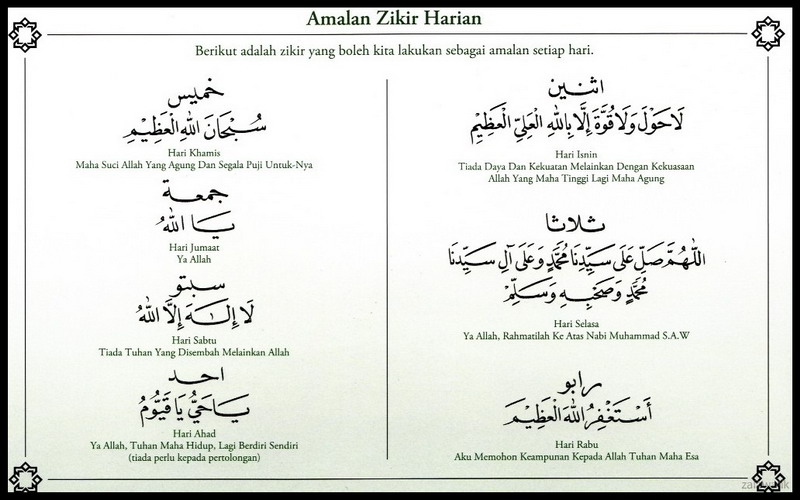 Amalan Zikir Harian
Berikut adalah zikir yang boleh kita lakukan sebagai amalan setiap hari.
اثنين
لَا حَوْلَ وَلَا قُوَّةَ إِلَّا بِاللهِ الْعَلِيِّ الْعَظِيْمِ
Hari Isnin
Tiada Daya Dan Kekuatan Melainkan Dengan Kekuasaan
Allah Yang Maha Tinggi Lagi Maha Agung
ثلاثا
اَللّٰهُمَّ صَلِّ عَلَى سَيِّدِنَا مُحَمَّدٍ وَعَلَى آلِ سَيِّدِنَا
مُحَمَّدٍ وَصَحْبِهِ وَسَلِّمْ
Hari Selasa
Ya Allah, Rahmatilah Ke Atas Nabi Muhammad S.A.W
رابو
أَسْتَغْفِرُ اللهَ الْعَظِيْمَ
Hari Rabu
Aku Memohon Keampunan Kepada Allah Tuhan Maha Esa
خميس
سُبْحَانَ اللهِ الْعَظِيْمِ
Hari Khamis
Maha Suci Allah Yang Agung Dan Segala Puji Untuk-Nya
جمعة
يَا اَللهُ
Hari Jumaat
Ya Allah
سبتو
لَا إِلٰهَ إِلَّا اللهُ
Hari Sabtu
Tiada Tuhan Yang Disembah Melainkan Allah
احد
يَا حَيُّ يَا قَيُّوْمُ
Hari Ahad
Ya Allah, Tuhan Maha Hidup, Lagi Berdiri Sendiri
(tiada perlu kepada pertolongan)